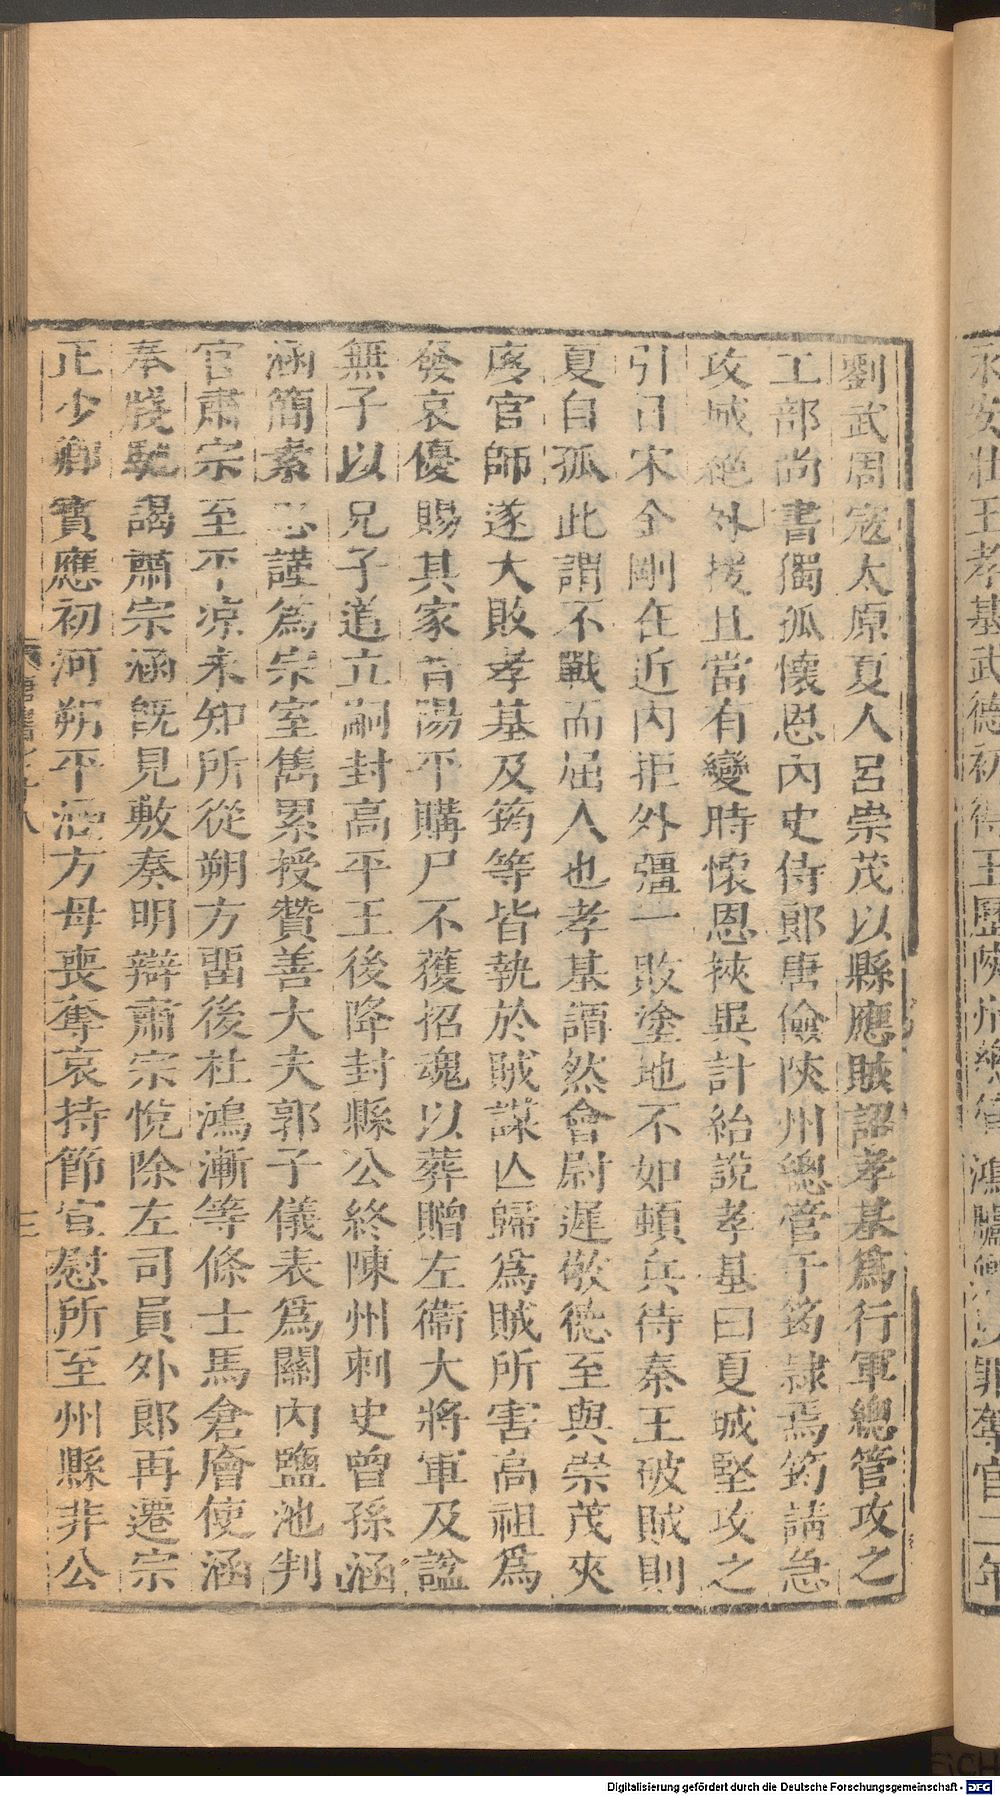 永安壯王孝基武德初得王歷陝州總管鴻臚卿以罪奪官二年
劉武周寇太原夏人呂崇茂以縣應賊詔孝基爲行軍總管攻之
工部尚書獨孤懷恩內史侍郎唐儉陝州總管于筠隸焉筠請急
攻城絕外援且當有變時懷恩挾異計紿說孝基曰夏城堅攻之
引日宋金剛在近內拒外彊一敗塗地不如頓兵待秦王破賊則
夏自孤此謂不戰而屈人也孝基謂然會尉遲敬德至與崇茂夾
官師遂大敗孝基及筠等皆執於賊謀亾歸爲賊所害高祖爲
發哀優賜其家晉陽平購尸不獲招魂以葬贈左衞大將軍及諡
無子以兄子道立嗣封高平王後降封縣公終陳州刺史曾孫涵
涵簡素忠謹爲宗室雋累授贊善大夫郭子儀表爲關內鹽池判
官肅宗至平凉未知所從朔方畱後杜鴻漸等條士馬倉廥使涵
奉牋馳謁肅宗涵旣見敷奏明辯肅宗悅除左司員外郎再遷宗
正少卿寶應初河朔平涵方母喪奪哀持節宣慰所至州縣非公
唐書七十八
三
Digitalisierung gefördert durch die Deutsche Forschungsgemeinschaft - DFG